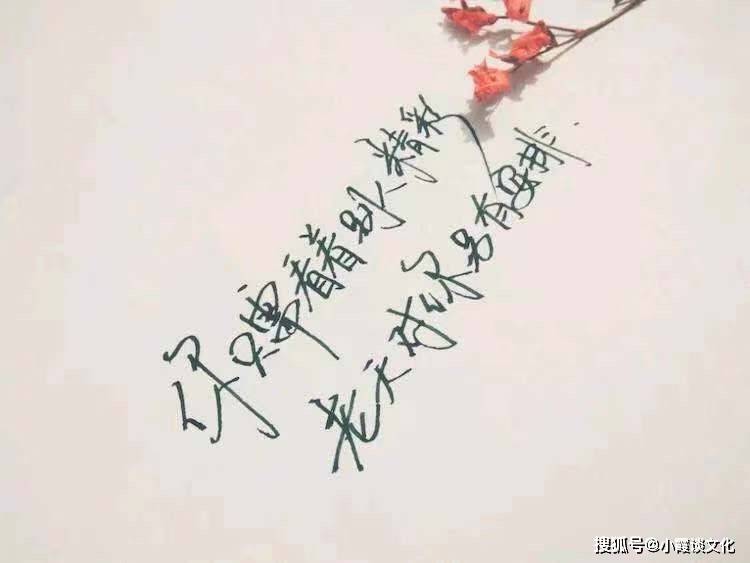 你只需看着别人精彩
老天对你另有安排
搜狐号@小霞谈文化